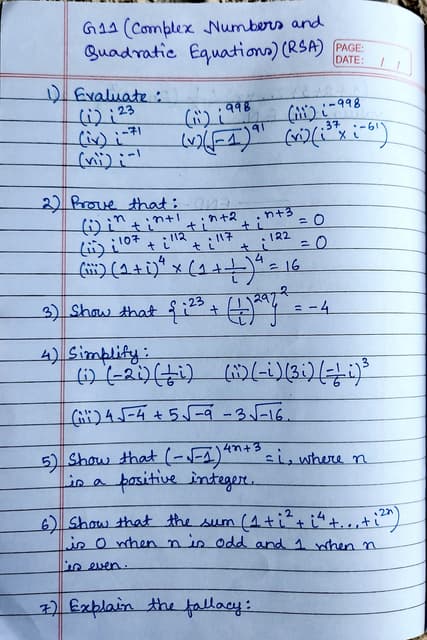 G11 (Complex Numbers and
Quadratic Equations) (RSA)
PAGE:
DATE: / /
1) Evaluate :
(i) i²³ (ii) i⁹⁹⁸ (iii) i⁻⁹⁹⁸
(iv) i⁻⁷¹ (v) (√-1)⁹¹ (vi) (i³⁷ × i⁻⁶¹)
(vii) i⁻¹
2) Prove that :
(i) iⁿ + iⁿ⁺¹ + iⁿ⁺² + iⁿ⁺³ = 0
(ii) i¹⁰⁷ + i¹¹² + i¹¹⁷ + i¹²² = 0
(iii) (1+i)⁴ × (1+1/i)⁴ = 16
3) Show that {i²³ + (1/i)²⁹}² = -4
4) Simplify :
(i) (-2i)(1/6 i) (ii) (-i)(3i)(-1/6 i)³
(iii) 4√-4 + 5√-9 - 3√-16.
5) Show that (-√-1)⁴ⁿ⁺³ = i, where n
is a positive integer.
6) Show that the sum (1+i²+i⁴+...+i²ⁿ)
is 0 when n is odd and 1 when n
is even.
7) Explain the fallacy :